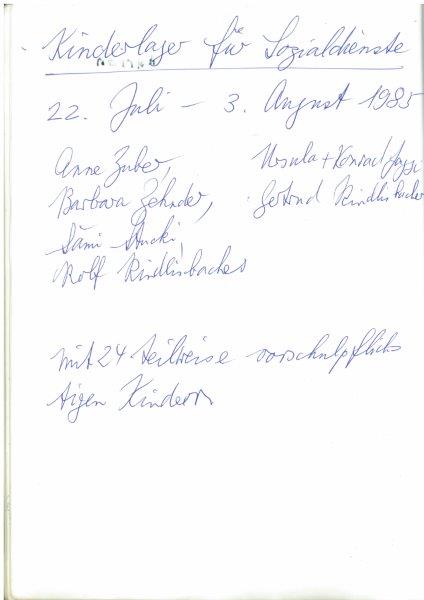 Kinderlager für Sozialdienste
22. Juli – 3. August 1985
Anne Zuber,
Barbara Zehnder,
Sämi Stucki,
Rolf Rindlisbacher
Ursula + Konrad
Gertrud Rindlisbacher
mit 24 teilweise vorschulpflich
tigen Kindern